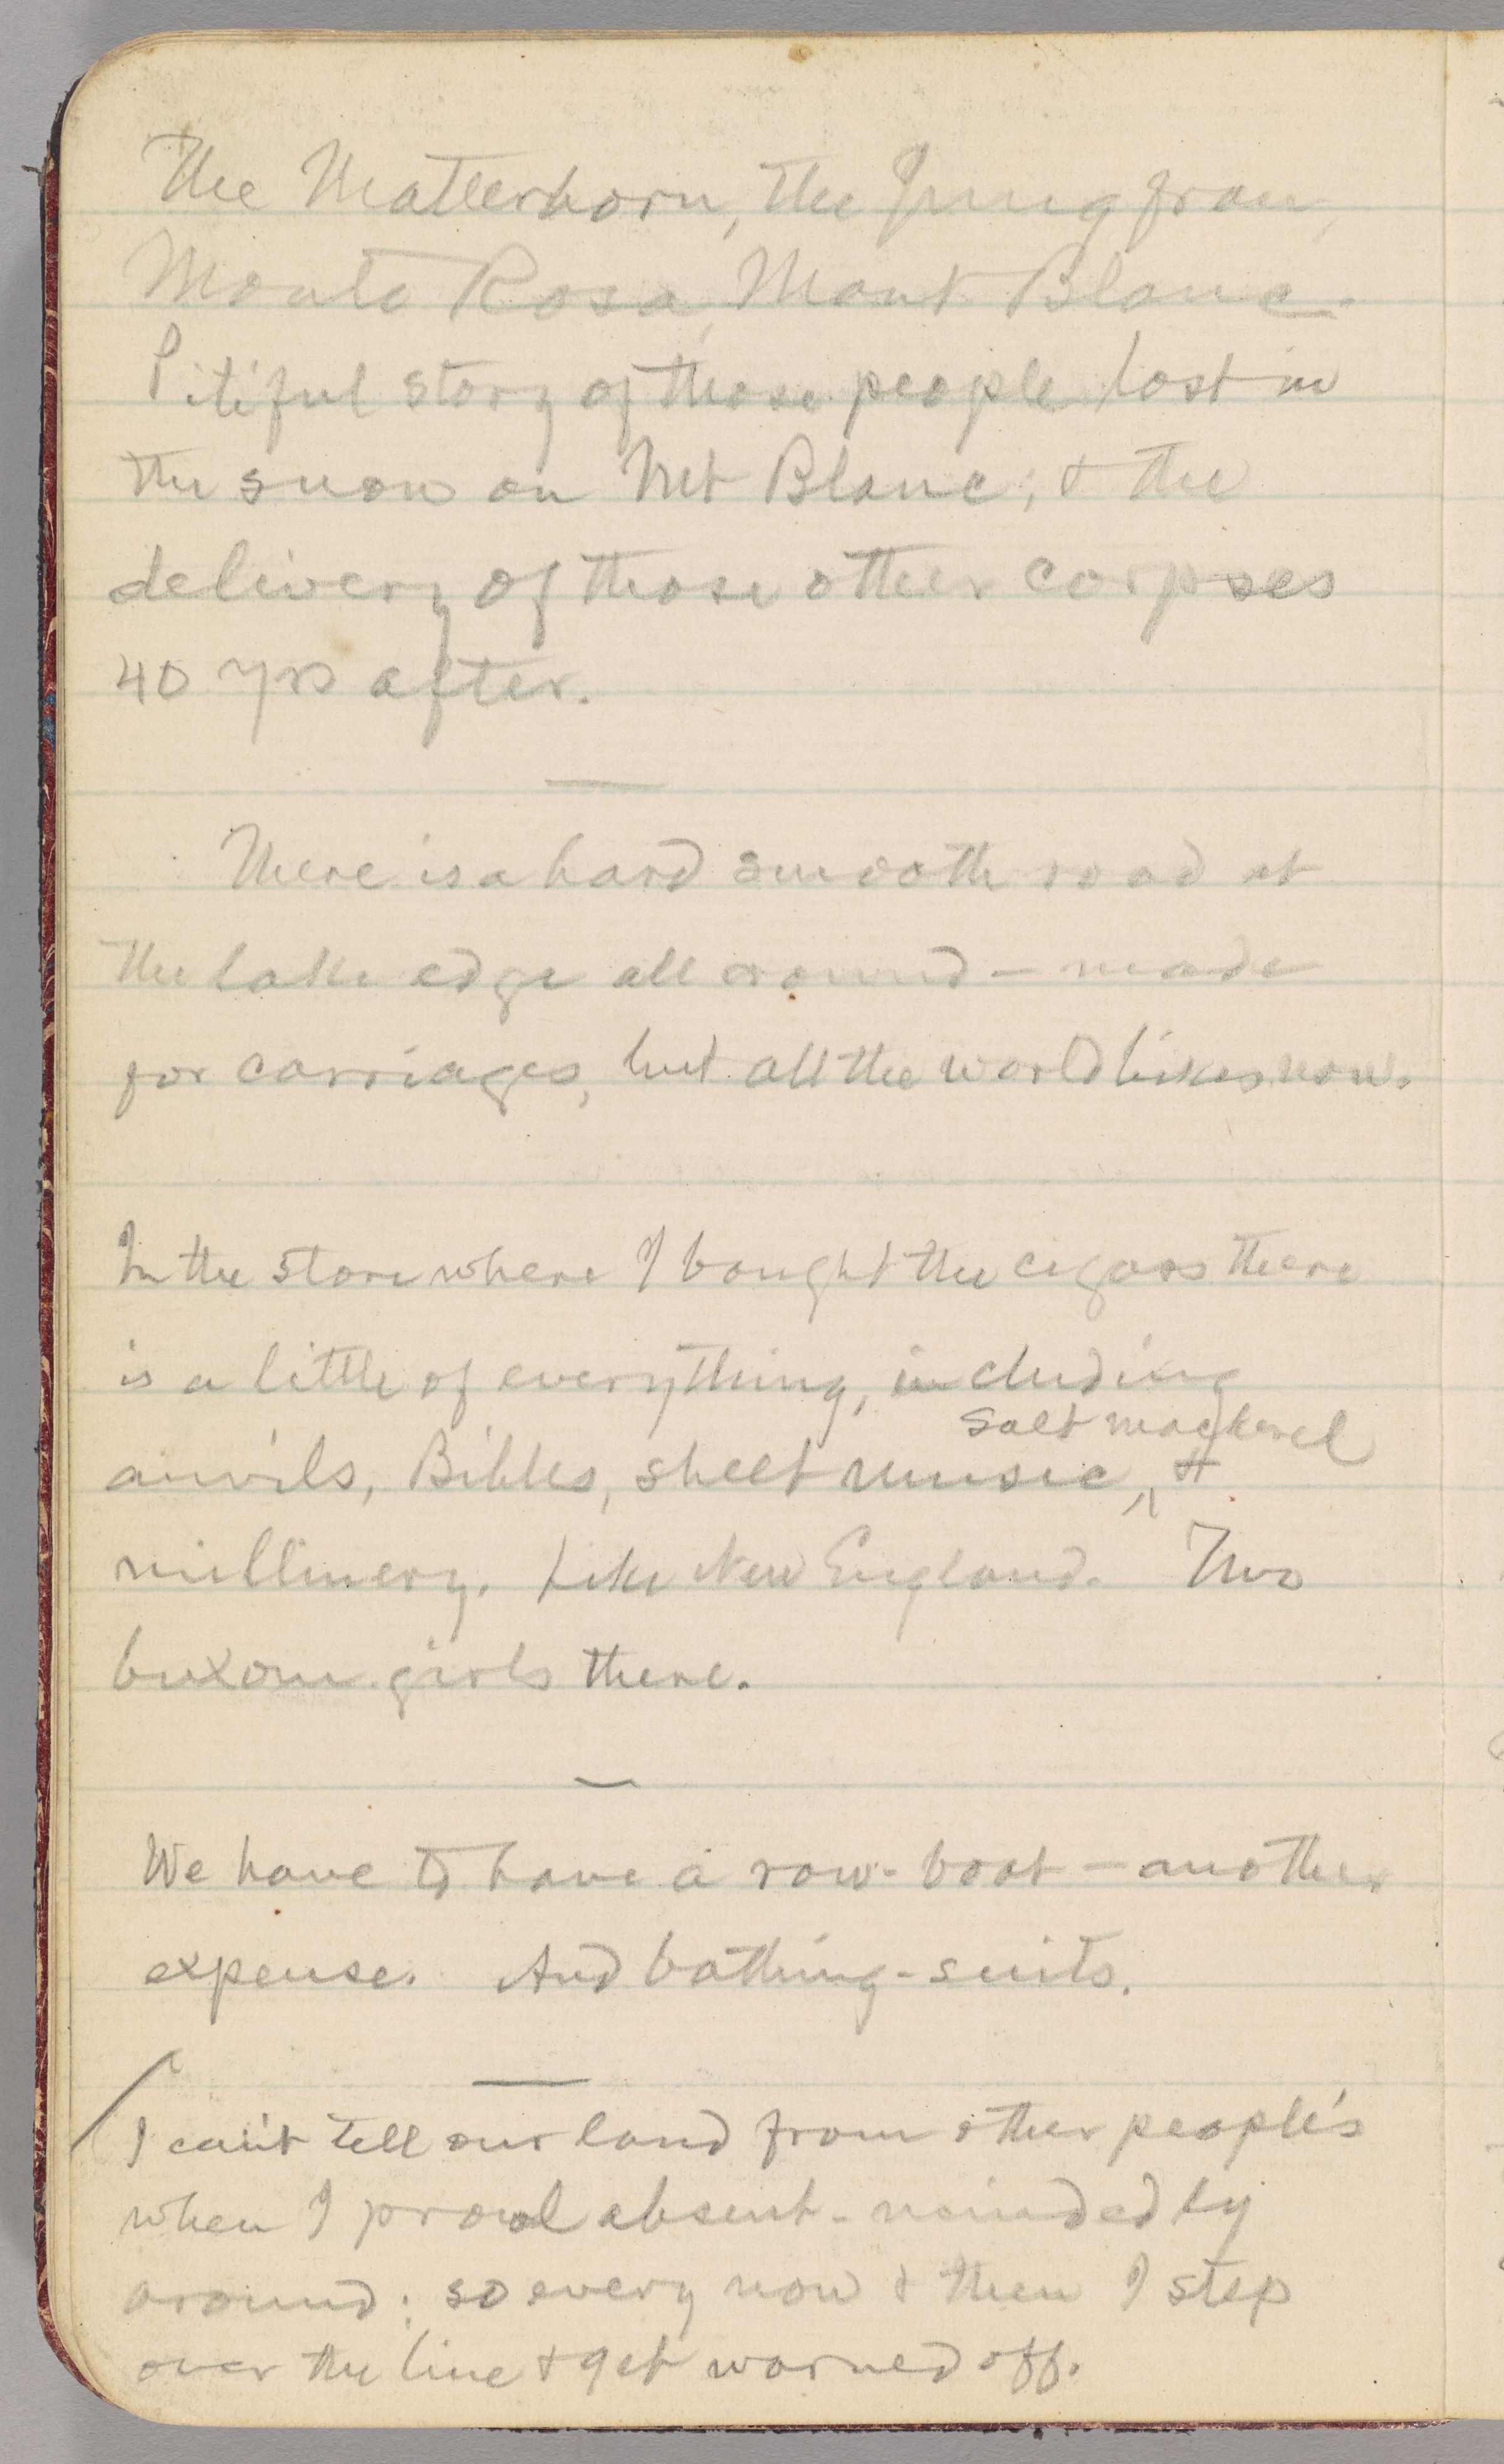 The Matterhorn, the Jungfrau,
Monte Rosa, Mont Blanc.
Pitiful story of those people lost in
the snow on Mt Blanc; & the
delivery of those other corpses
40 yrs after.
—
There is a hard smooth road at
the lake edge all around — made
for carriages, but all the world bikes now.
In the store where I bought the cigars there
is a little of everything, including
salt mackerel
anvils, Bibles, sheet music, ^ &
millinery. Like New England. Two
buxom girls there.
—
We have to have a row-boat — another
expense. And bathing-suits.
—
I can't tell our land from other people's
when I prowl absent-mindedly
around; so every now & then I step
over the line & get warned off.